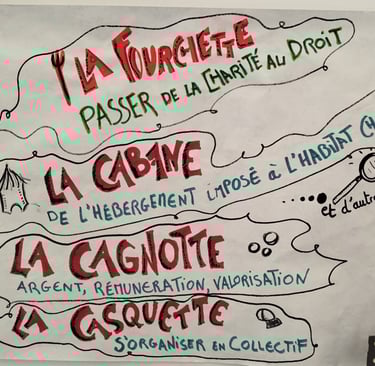 LA FOURCHETTE
PASSER DE LA CHARITÉ AU DROIT
LA CABANE
DE L'HÉBERGEMENT IMPOSÉ À L'HABITAT CH
et d'autr
LA CAGNOTTE
ARGENT, RÉMUNÉRATION, VALORISATION
LA CASQUETTE
S'ORGANISER EN COLLECTIF